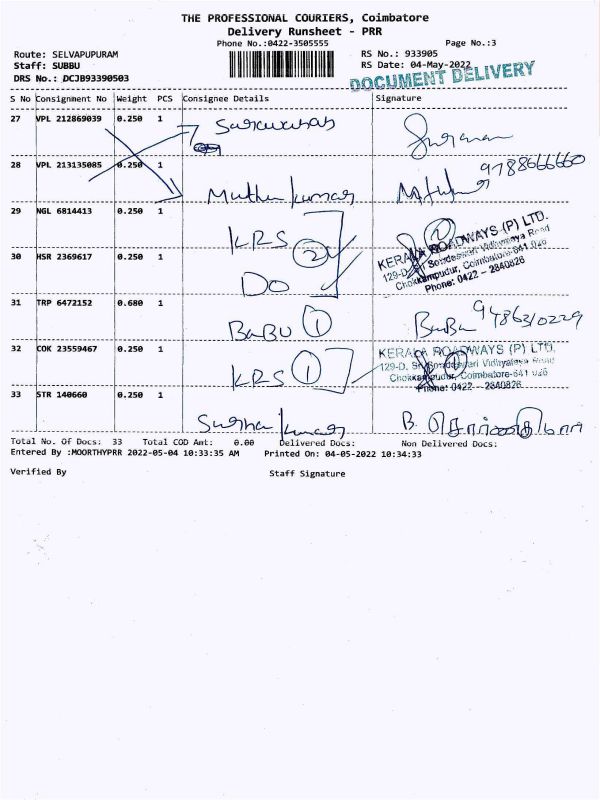 THE PROFESSIONAL COURIERS, Coimbatore
Delivery Runsheet - PRR
Phone No.:0422-3505555
Page No.:3
Route: SELVAPUPURAM
RS No.: 933905
Staff: SUBBU
RS Date: 04-May-2022
DRS No.: DCJB93390503
DOCUMENT DELIVERY
S No Consignment No Weight PCS Consignee Details Signature
27 VPL 212869039 0.250 1
28 VPL 213135085 0.250 1 9788666660
Muthu kumar
29 NGL 6814413 0.250 1 KRS 2
KERALA ROADWAYS (P) LTD.
30 HSR 2369617 0.250 1 DO
129-D, Sri Sowdeswari Vidhyalaya Road
Chokkampudur, Coimbatore-641 026
Phone: 0422 - 2340826
31 TRP 6472152 0.680 1 BABU 1 Babu 9486310229
32 COK 23559467 0.250 1 KRS 1
KERALA ROADWAYS (P) LTD.
129-D, Sri Sowdeswari Vidhyalaya Road
Chokkampudur, Coimbatore-641 026
Phone: 0422 - 2340826
33 STR 140660 0.250 1
kumar B.
Total No. Of Docs: 33 Total COD Amt: 0.00 Delivered Docs: Non Delivered Docs:
Entered By :MOORTHYPRR 2022-05-04 10:33:35 AM Printed On: 04-05-2022 10:34:33
Verified By Staff Signature